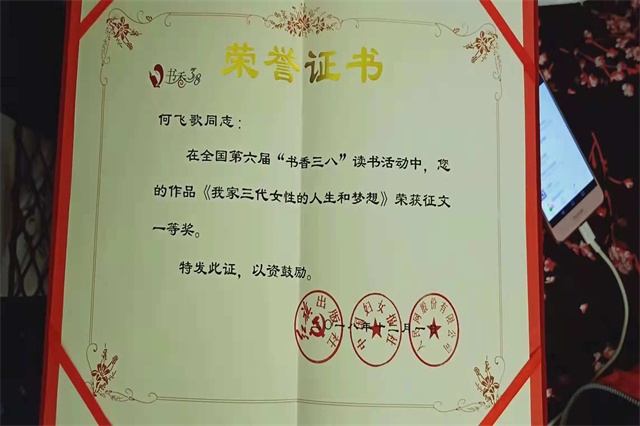 书香38
荣誉证书
何飞歌同志：
在全国第六届“书香三八”读书活动中，您
的作品《我家三代女性的人生和梦想》荣获征文
一等奖。
特发此证，以资鼓励。
出版社
中国妇女报社
人民网股份有限公司
二〇一八年十一月